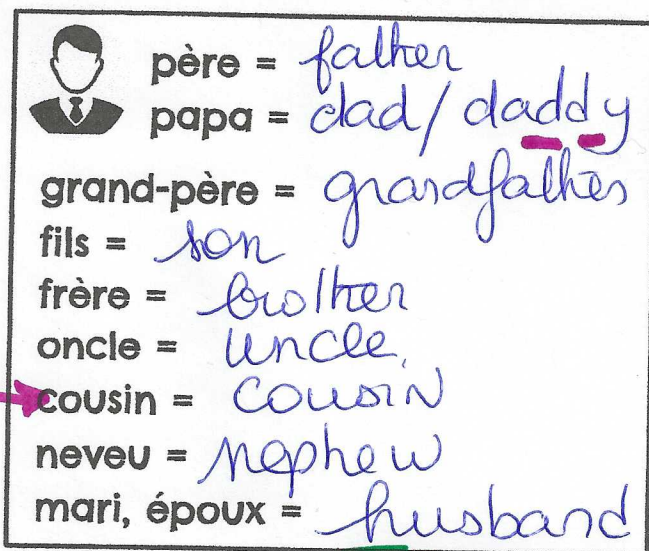 père = father
papa = dad/daddy
grand-père = grandfather
fils = son
frère = brother
oncle = uncle
cousin = cousin
neveu = nephew
mari, époux = husband